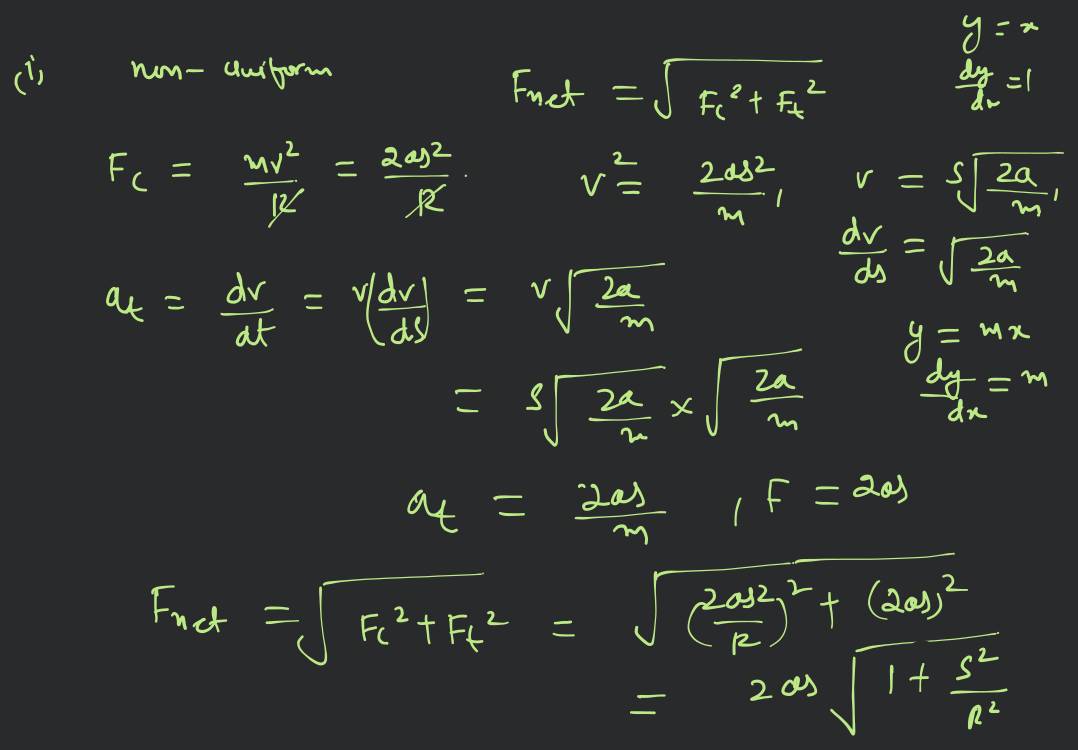 (i) non-uniform
Fnet = √(Fc² + Ft²)
y = x
dy/dx = 1
Fc = mv²/R = 2as²/R
v² = 2as²/m, v = s√(2a/m),
dv/ds = √(2a/m)
at = dv/dt = v(dv/ds) = v√(2a/m)
y = mx
dy/dx = m
= s√(2a/m) × √(2a/m)
at = 2as/m , F = 2as
Fnet = √(Fc² + Ft²) = √((2as²/R)² + (2as)²)
= 2as √(1 + s²/R²)